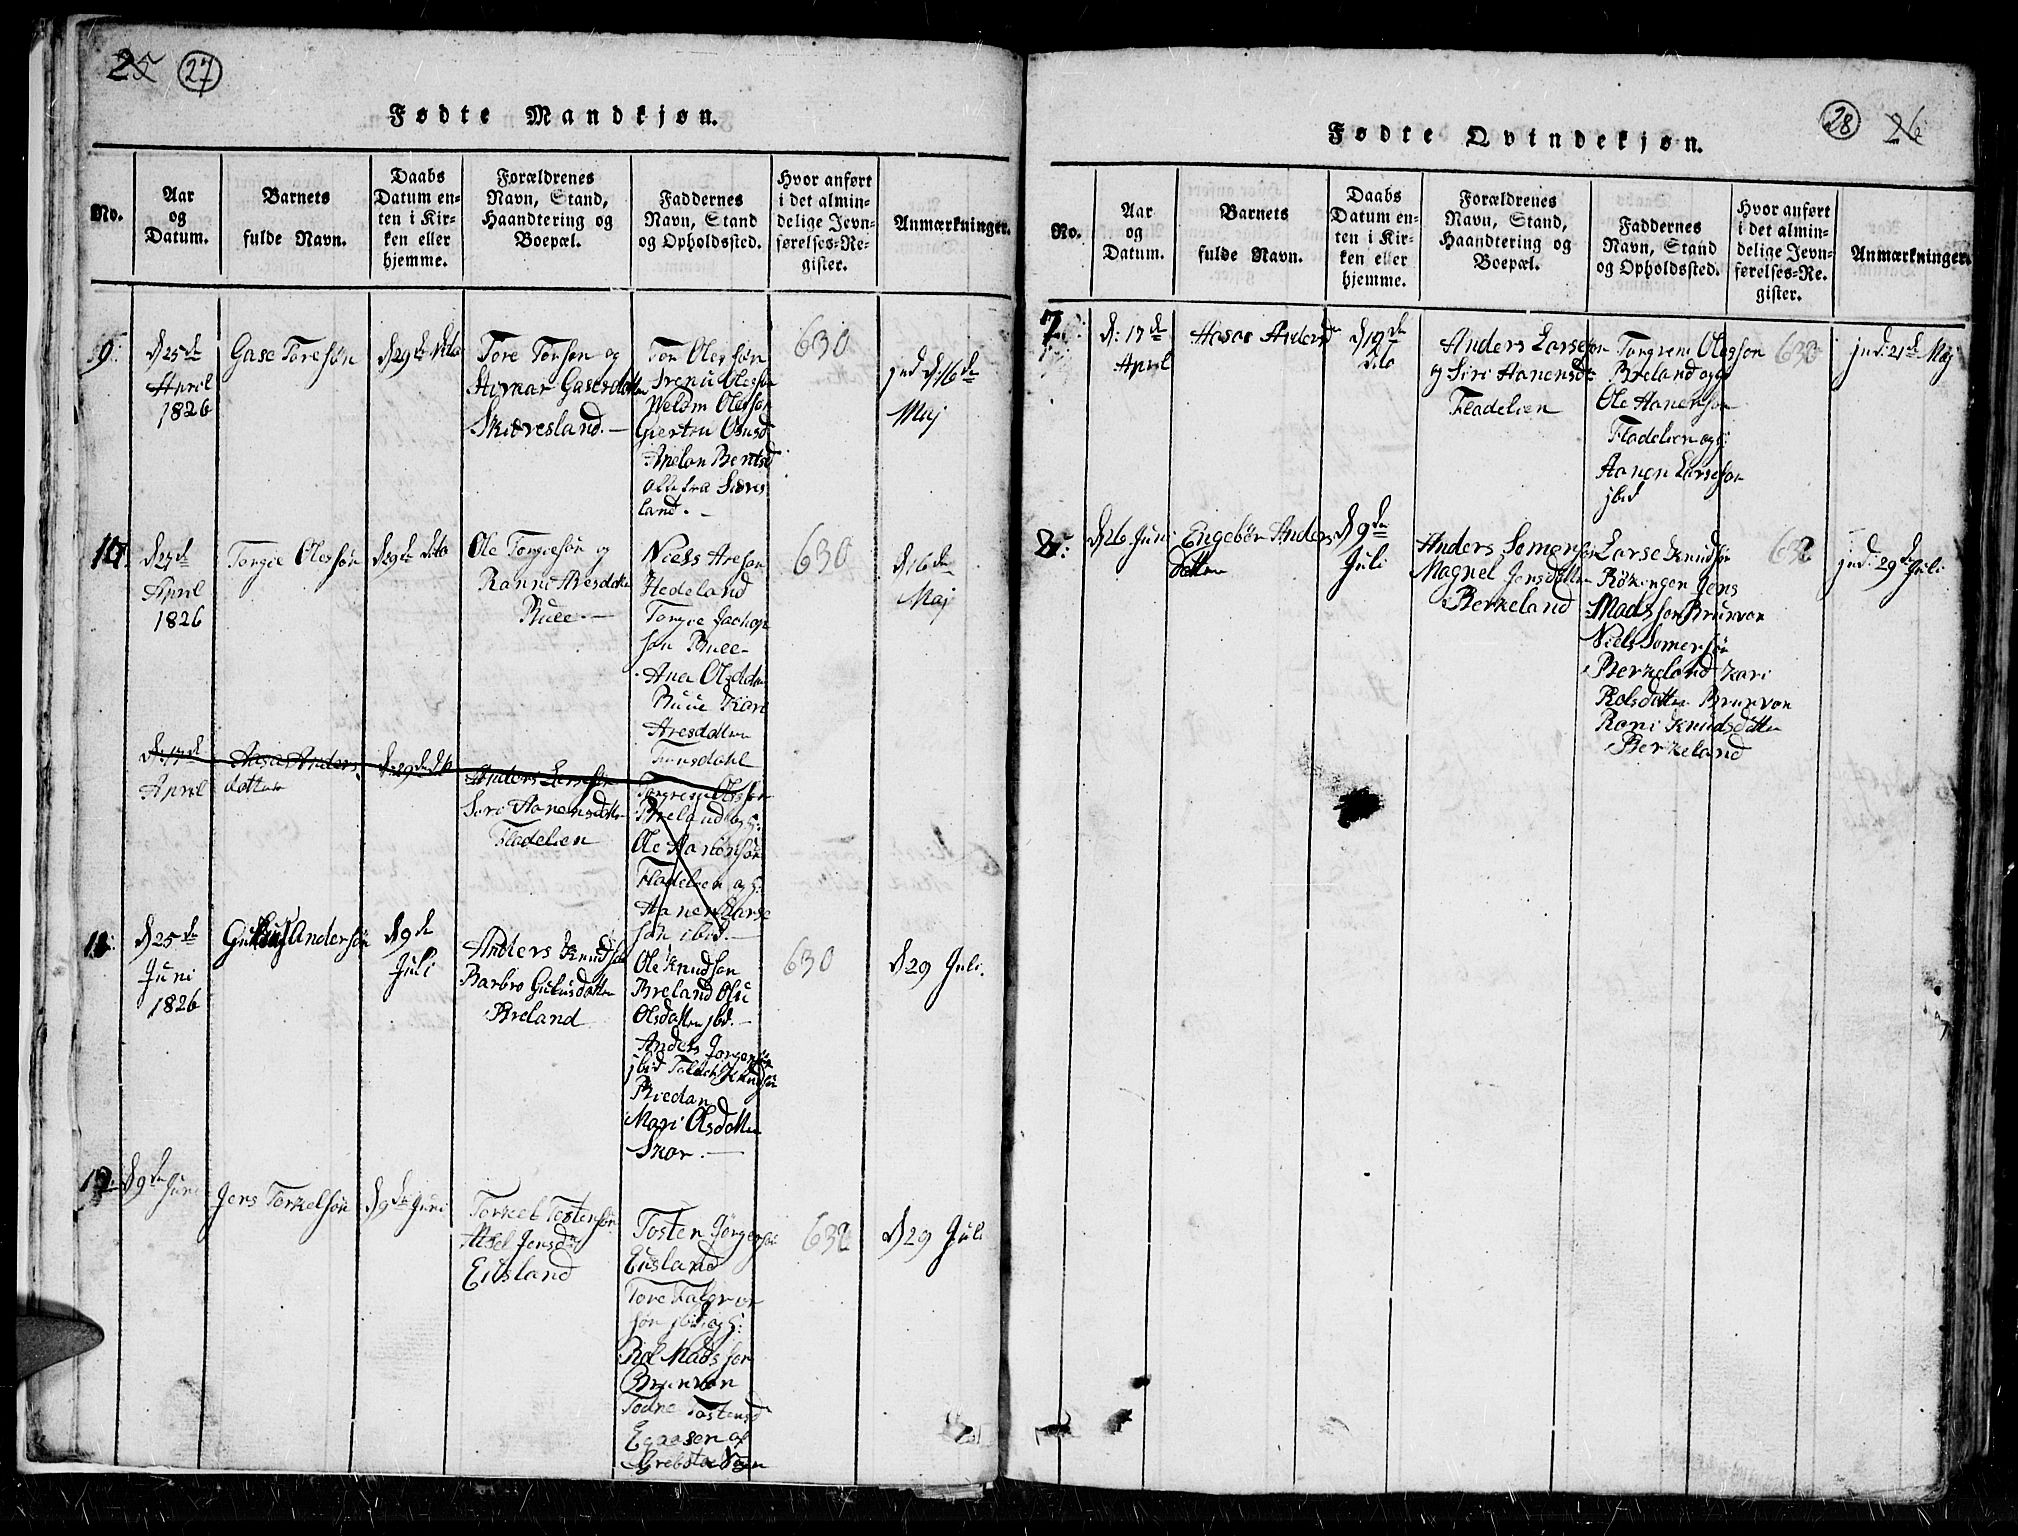 25 27
Fødte Mandkjøn.
No.
Aar
og
Datum.
Barnets
fulde Navn.
Daabs
Datum en-
ten i Kir-
ken eller
hjemme.
Forældrenes
Navn, Stand,
Haandtering og
Boepæl.
Faddernes
Navn, Stand
og Opholdssted.
Hvor anført
i det almin-
delige Jevn-
førelses-Re-
gister.
Anmærkninger.
9:
d 25de
April
1826
Gase Toresøn
d 29de dito
Tore Torsøn og
Gasesdatter
Skieresland.
Tor Olessøn
Olessøn
Olessøn
Gierten Olsusd
Anelan Bentsd
alle fra Skieres
land.
630
jnd d: 16de
Maj
10
d 27de
April
1826
Torgie Olessøn
d 29de dito
Ole Torgiesøn og
Ranni Aresdatter
Buee.
Niels Aresøn
Hedeland
Torgie Jachop
søn Buee
Ana Olsdatter
Buue Kari
Aresdatter
630
d 16de
Maj
d: 17d
April
Aasa Anders
datter
d 29de dto
Anders Larssøn
Siri Aanensdatter
Fladelien
Torgrem Olessøn
Breland og
Ole
Fladelien og
Aanen Larse
søn ibid.
11:
d 25de
Juni
1826
Andersøn
d 9d
Juli
Anders Knudsøn
Barbro datter
Breland
Ole Knudsøn
Breland
Olsdatter jbd.
Anders
jbid Knudsøn
Mari Olsdatter
630
d 29 Juli.
12
d 9de Juni
Jens Torkelsøn
d 9de Juni
Torkel Tostensøn
Jensd
Eitsland
Tosten Jørgensøn
Tore
søn jbid og
Rol Madssøn
Brunvon
Todne Tostensd
632
d 29 Juli
28 26
Fødte Qvindekjøn.
No.
Aar
og
Datum.
Barnets
fulde Navn.
Daabs
Datum en-
ten i Kir-
ken eller
hjemme.
Forældrenes
Navn, Stand,
Haandtering og
Boepæl.
Faddernes
Navn, Stand
og Opholdssted.
Hvor anført
i det almin-
delige Jevn-
førelses-Re-
gister.
Anmærkninger.
7
d: 17de
April
Aasar Andersd
d 19de
dito
Anders Larsesøn
og Siri Aanensd
Fladelien
Torgrem Olessøn
Breland og
Ole Aanensøn
Fladelien og
Aanen Larsesøn
jbid
630
jnd: 21de Maj
8:
d 26 Juni
Engebør Anders
datter
d 9de
Juli
Anders Somersøn
Magnel Jensdatter
Berkeland
Larse Knudsøn
Jens
Madssøn Brunvon
Niels Somersøn
Berkeland Kari
Rolsdatter Brunvon
Rani Knudsdatter
Berkeland
632
jnd: 29de Juli